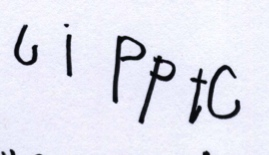 G i P P t C